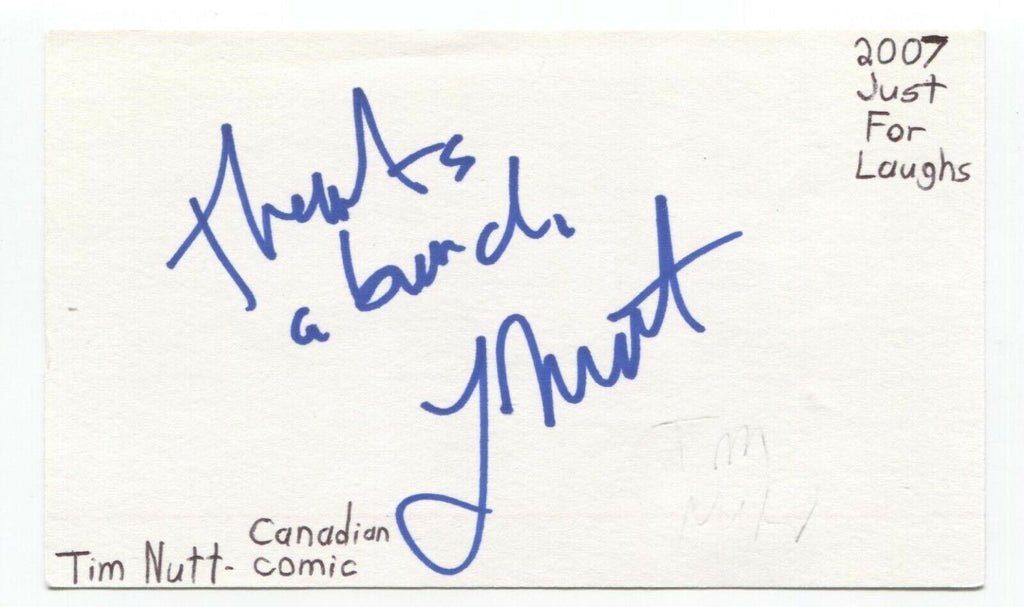 2007
Just
For
Laughs
Thanks
a bunch.
T Nutt
Tim
Canadian
Tim Nutt- comic